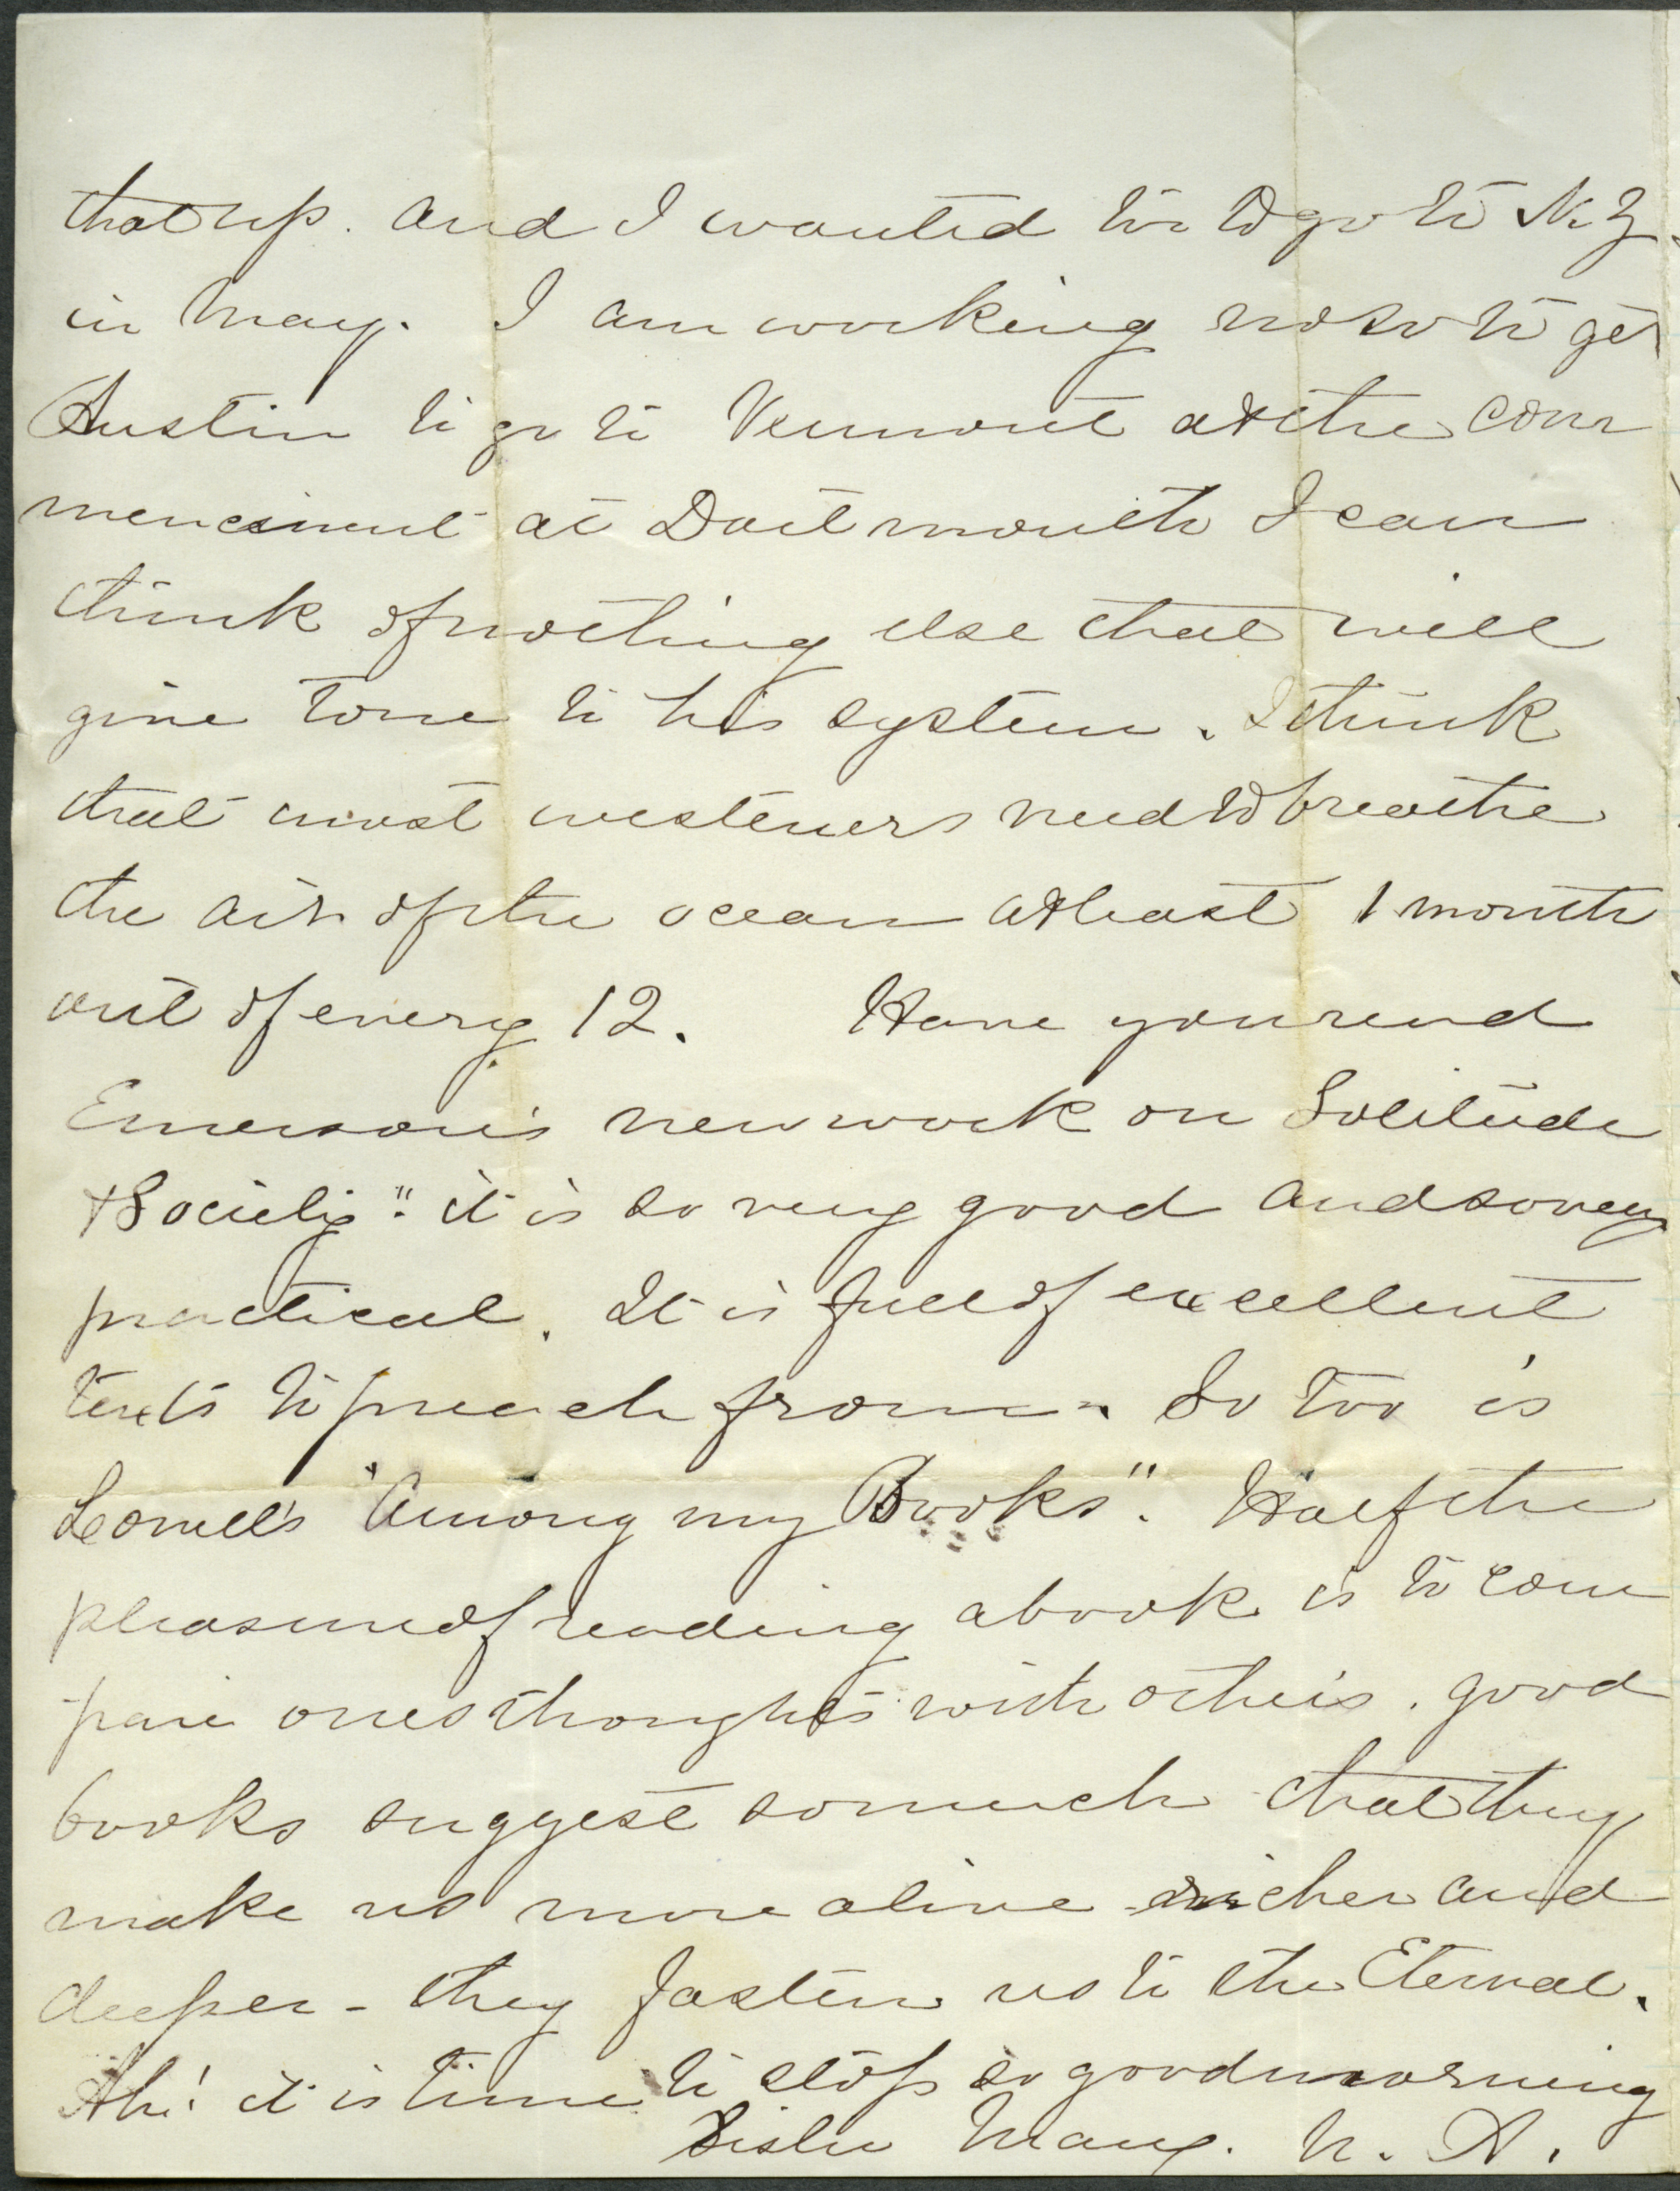 that up. and I wanted too to go to N.Y
in May. I am working now to get
Austin to go to Vermont at the com
mencement at Dartmouth I can
think of nothing else that will
give tone to his system. I think
that most westeners need to breathe
the air of the ocean at least 1 month
out of every 12. Have you read
Emerson's new work on Solitude
& Society". it is so very good and so very
practical. It is full of excellent
texts to preach from. So too is
Lowell's "Among my Books". Half the
pleasure of reading a book is to com
pare ones thoughts with others. good
books suggest so much that they
make us more alive richer and
deeper - they fasten us to the Eternal.
Ah! it is time to stop so good morning
Sister Mary. N. A.